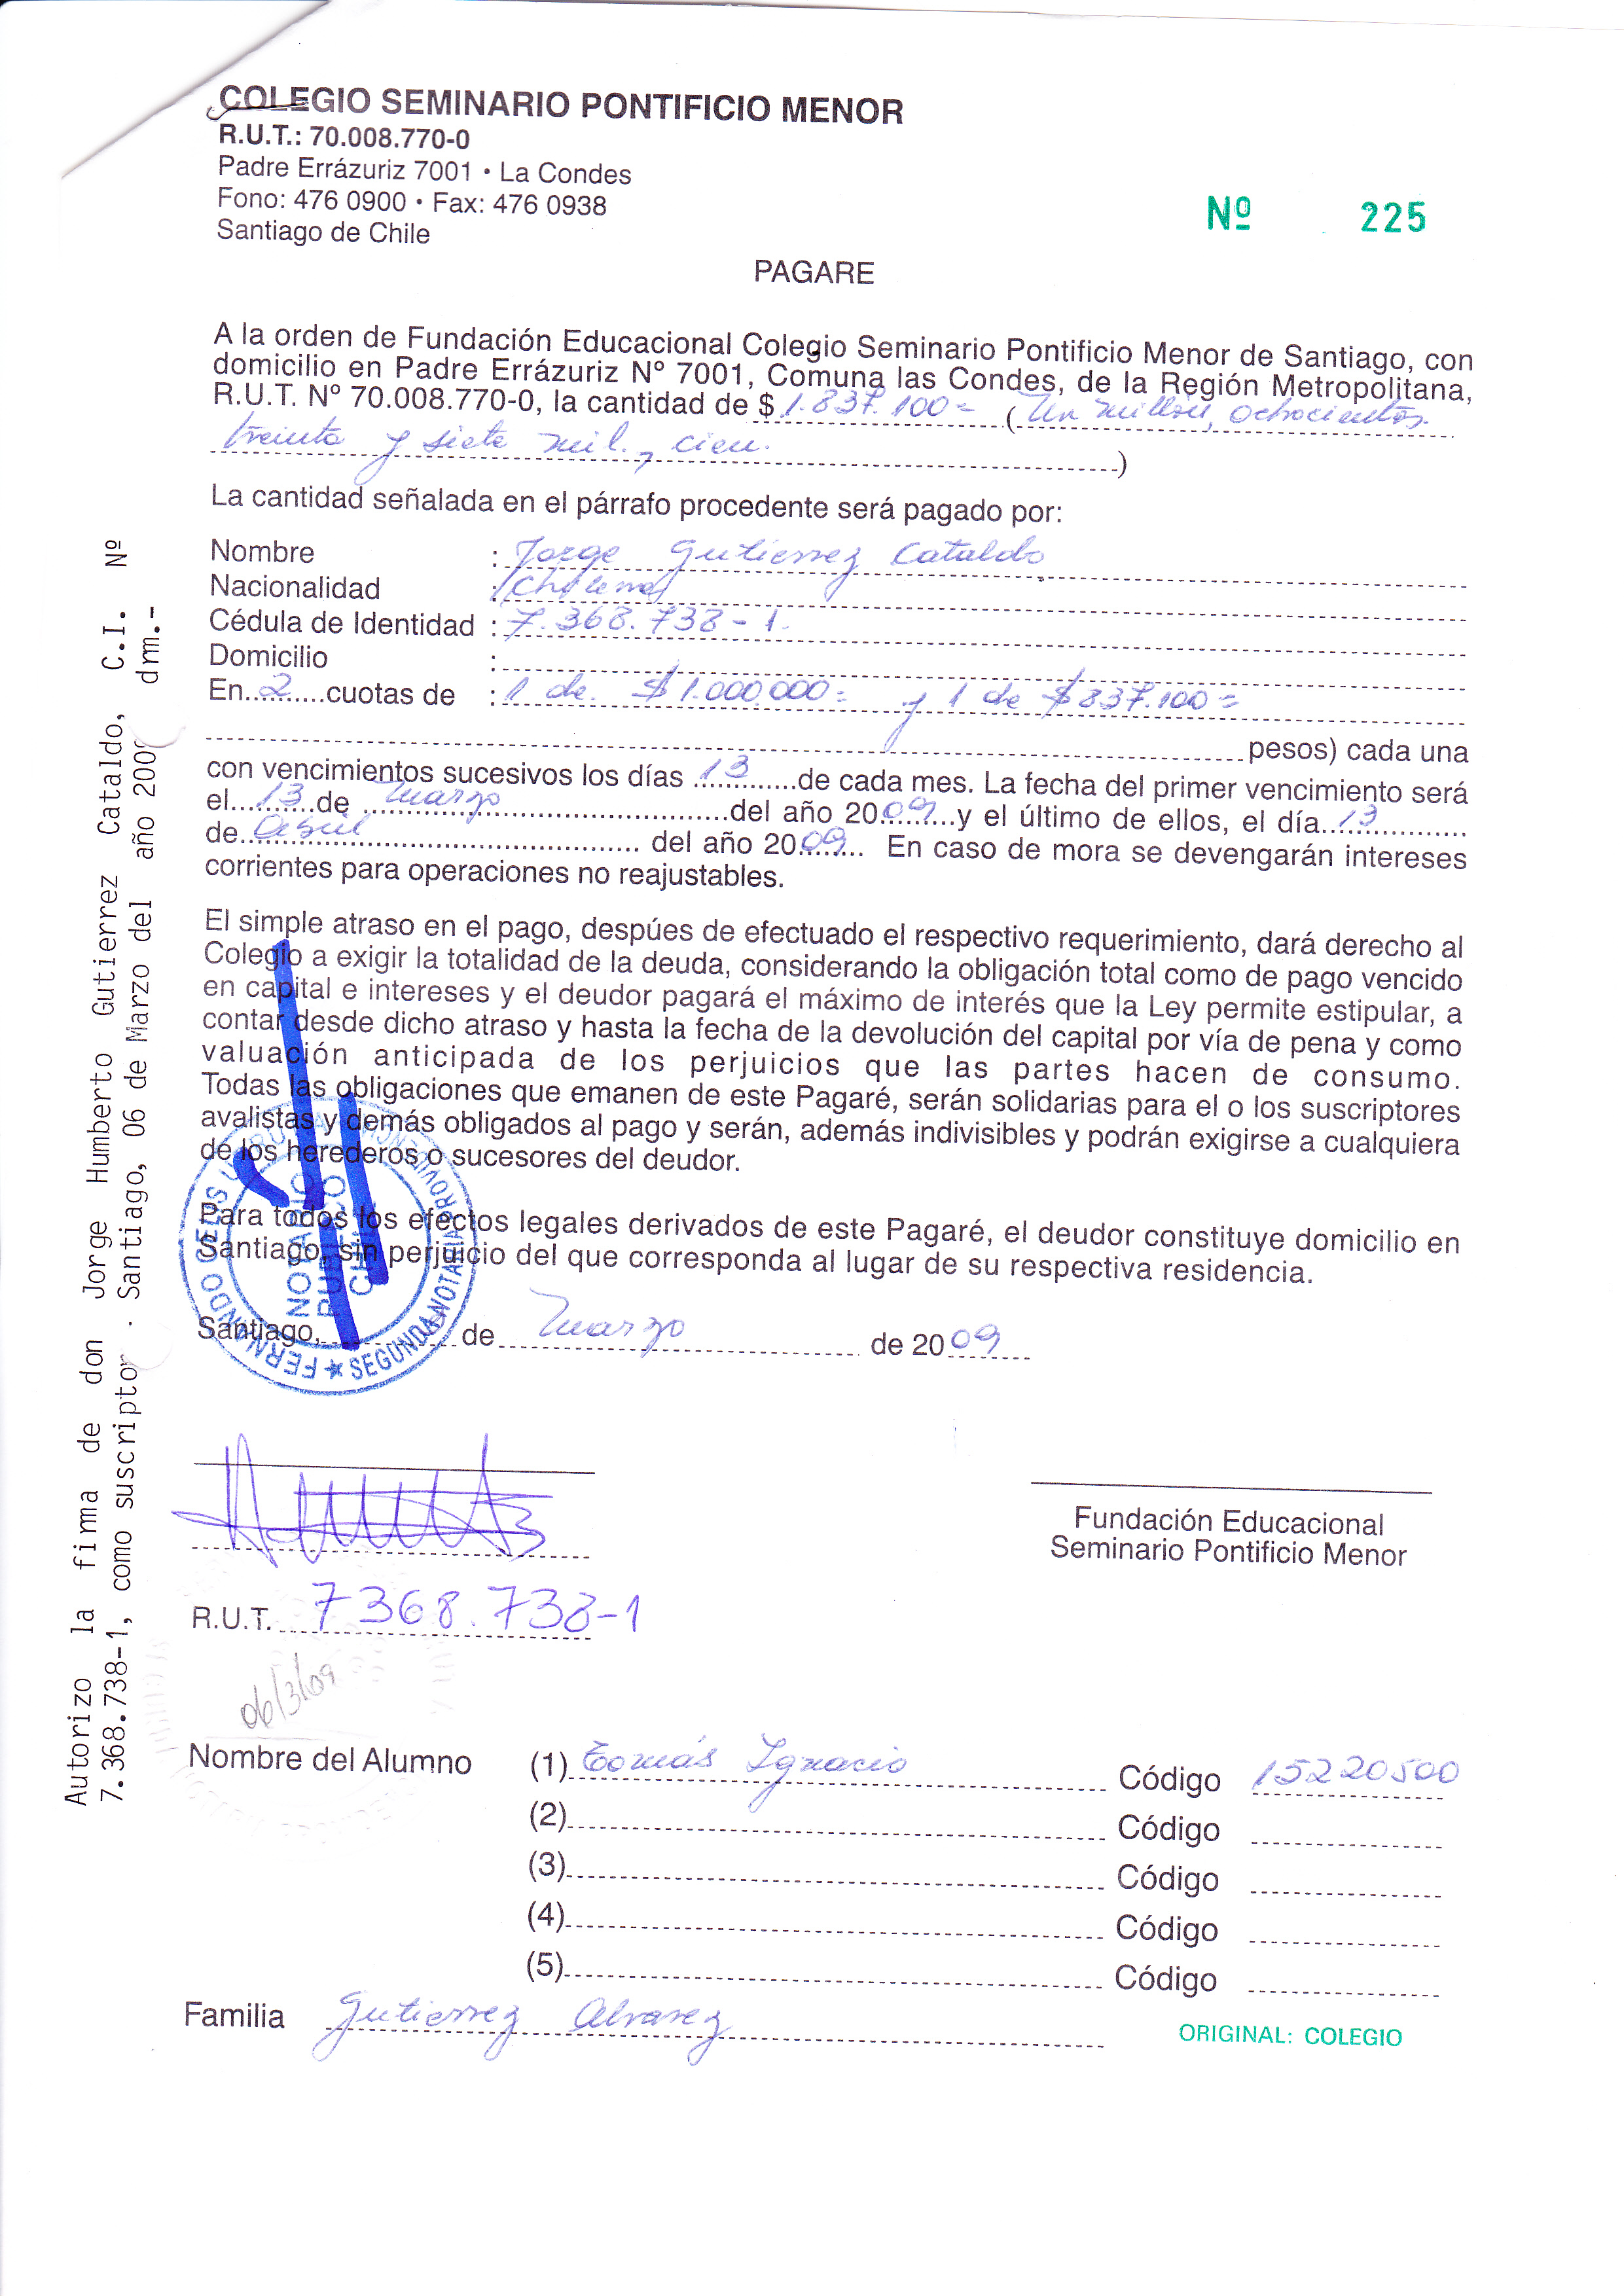 COLEGIO SEMINARIO PONTIFICIO MENOR
R.U.T.: 70.008.770-0
Padre Errázuriz 7001 • La Condes
Fono: 476 0900 • Fax: 476 0938
Santiago de Chile
Nº 225
PAGARE
A la orden de Fundación Educacional Colegio Seminario Pontificio Menor de Santiago, con
domicilio en Padre Errázuriz Nº 7001, Comuna las Condes, de la Región Metropolitana,
R.U.T. Nº 70.008.770-0, la cantidad de $ 1.837.100= (Un millón, ochocientos
treinta y siete mil, cien.)
La cantidad señalada en el párrafo procedente será pagado por:
Nombre : Jorge Gutierrez Cataldo
Nacionalidad : Chilena
Cédula de Identidad : 7.368.738-1.
Domicilio :
En 2 cuotas de : 1 de. $1.000.000= y 1 de $837.100=
pesos) cada una
con vencimientos sucesivos los días 13 de cada mes. La fecha del primer vencimiento será
el 13 de marzo del año 2009 y el último de ellos, el día 13
de Abril del año 2009 En caso de mora se devengarán intereses
corrientes para operaciones no reajustables.
El simple atraso en el pago, despúes de efectuado el respectivo requerimiento, dará derecho al
Colegio a exigir la totalidad de la deuda, considerando la obligación total como de pago vencido
en capital e intereses y el deudor pagará el máximo de interés que la Ley permite estipular, a
contar desde dicho atraso y hasta la fecha de la devolución del capital por vía de pena y como
valuación anticipada de los perjuicios que las partes hacen de consumo.
Todas las obligaciones que emanen de este Pagaré, serán solidarias para el o los suscriptores
avalistas y demás obligados al pago y serán, además indivisibles y podrán exigirse a cualquiera
de los herederos o sucesores del deudor.
Para todos los efectos legales derivados de este Pagaré, el deudor constituye domicilio en
Santiago, sin perjuicio del que corresponda al lugar de su respectiva residencia.
Santiago, de marzo de 2009
FERNANDO CELIS URRUTIA
SEGUNDA NOTARIA PROVIDENCIA
NOTARIO
PUBLICO
CHILE
Fundación Educacional
Seminario Pontificio Menor
R.U.T. 7368.738-1
06/3/09
Nombre del Alumno (1) Tomás Ignacio Código 15220500
(2) Código
(3) Código
(4) Código
(5) Código
Familia Gutierrez Alvarez
ORIGINAL: COLEGIO
Autorizo la firma de don Jorge Humberto Gutierrez Cataldo, C.I. Nº
7.368.738-1, como suscriptor. Santiago, 06 de Marzo del año 200 drm.-